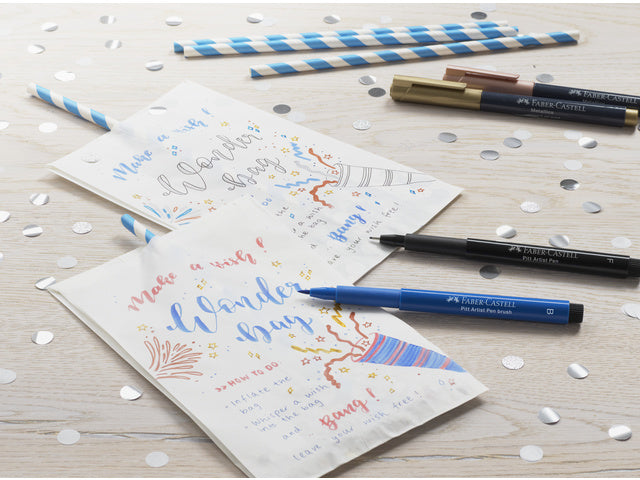 FABER-CASTELL
Metallics
FABER-CASTELL
Make a wish!
Wonder
Bag
Bang!
are your wish free!
FABER-CASTELL
Pitt Artist Pen
F
FABER-CASTELL
Pitt Artist Pen brush
B
Make a wish!
Wonder
Bag
>>HOW TO DO
- Inflate the
bag
- Whisper a wish
into the bag
and Bang!
leave your wish free!